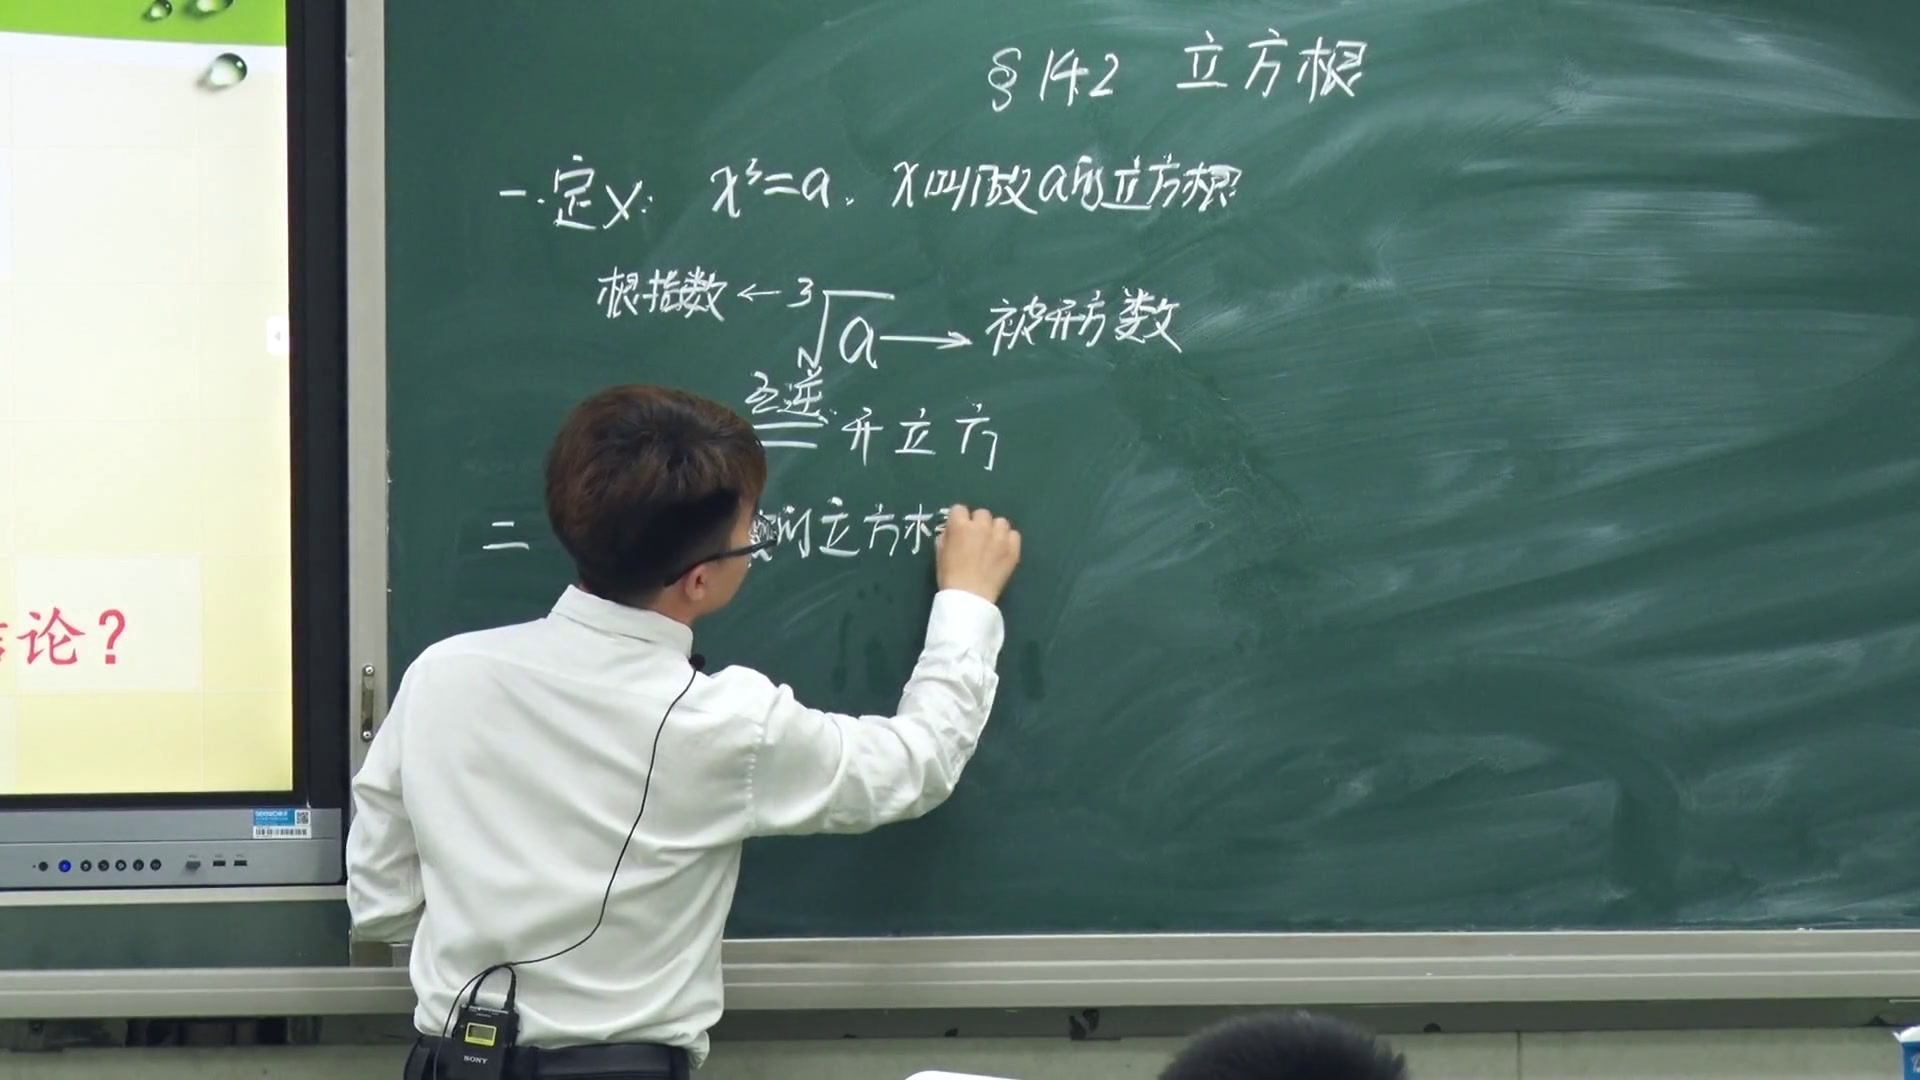 §14.2 立方根
一.定义: x³=a. x叫做a的立方根
根指数 ← ³√a → 被开方数
互逆
开立方
二 的立方根
论?
SONY